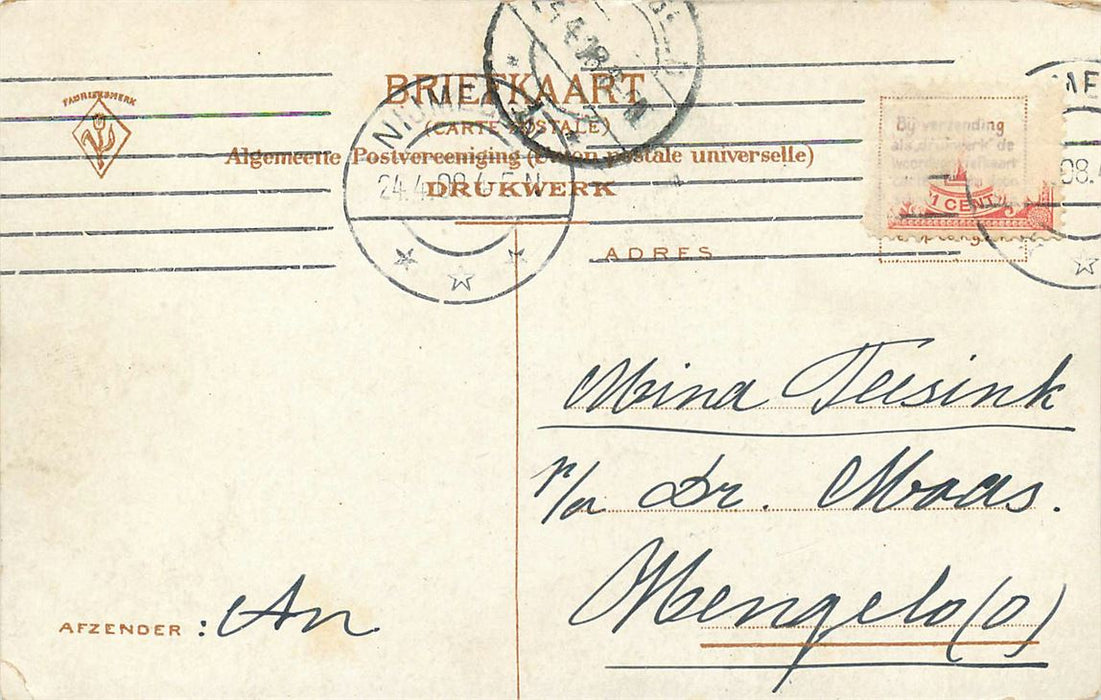 FABRIEKSMERK
BRIEFKAART
(CARTE POSTALE)
Algemeene Postvereeniging (Union postale universelle)
DRUKWERK
NIJME
24.4.08.4-5.N
ME
08.4
Bij verzending
als „drukwerk” de
1 CENT
ADRES
Mina Teesink
p/a Dr. Maas.
Hengelo (O)
AFZENDER : An